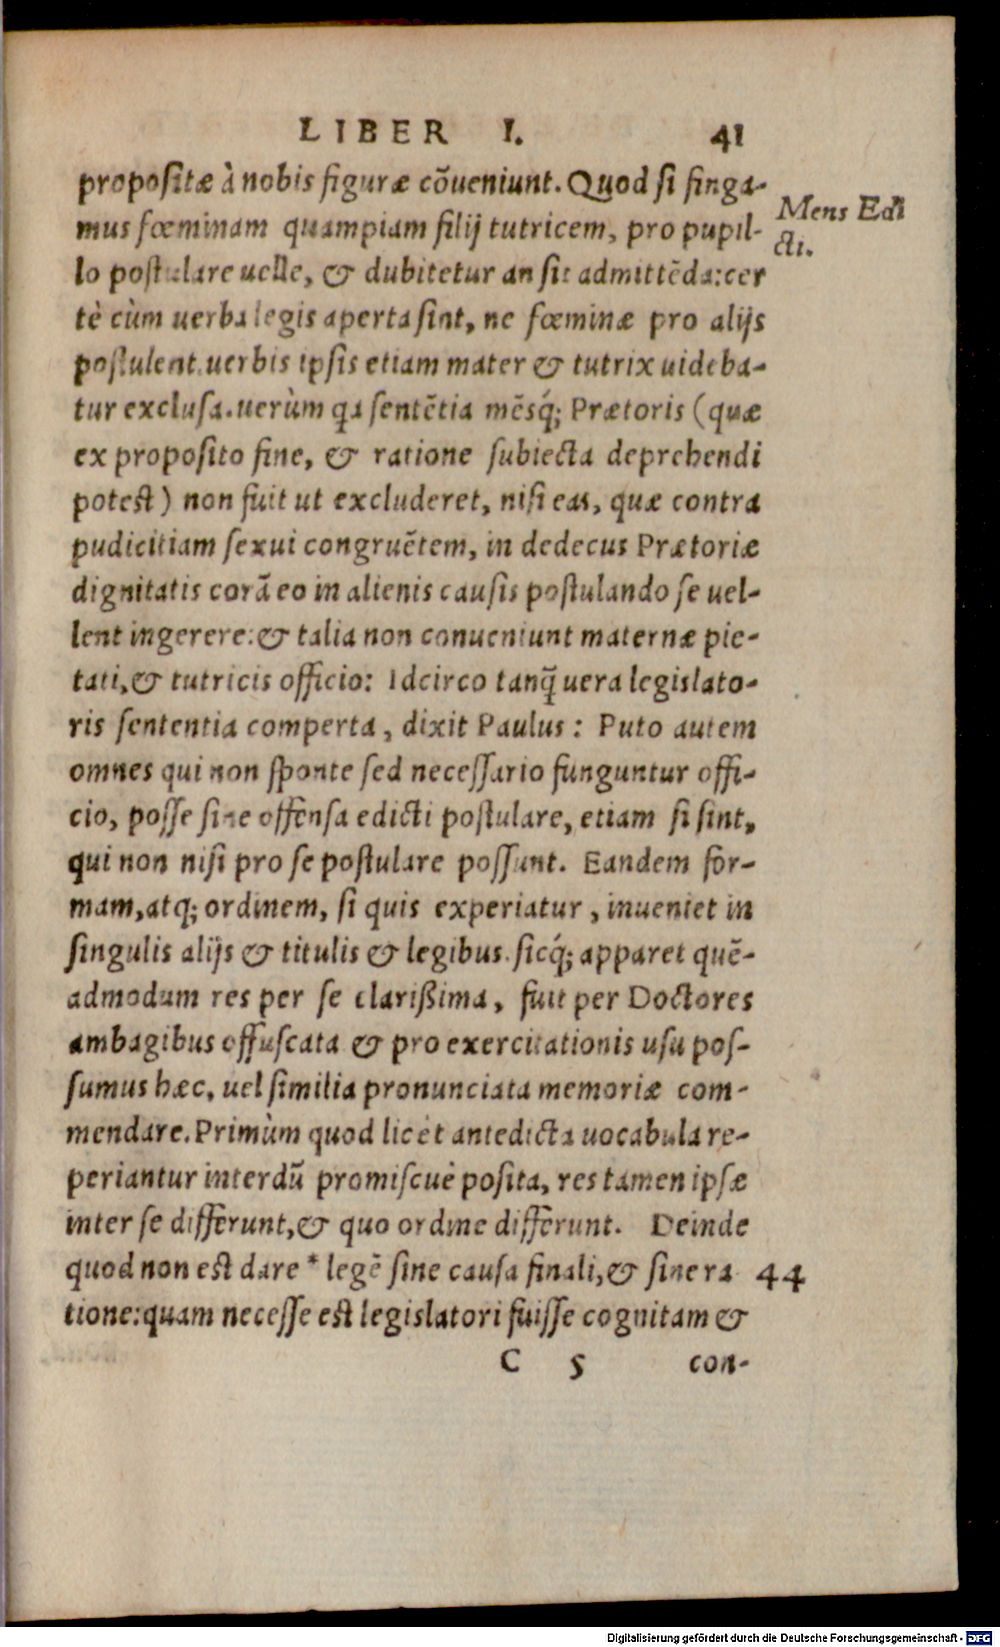 LIBER I. 41
propositæ à nobis figuræ cōueniunt. Quod si finga-
mus fœminam quampiam filij tutricem, pro pupil-
lo postulare uelle, & dubitetur an sit admittēda: cer
tè cùm uerba legis aperta sint, ne fœminæ pro alijs
postulent. uerbis ipsis etiam mater & tutrix uideba-
tur exclusa. uerùm qa sentētia mēsq́; Prætoris (quæ
ex proposito fine, & ratione subiecta deprehendi
potest) non fuit ut excluderet, nisi eas, quæ contra
pudicitiam sexui congruētem, in dedecus Prætoriæ
dignitatis corā eo in alienis causis postulando se uel-
lent ingerere: & talia non conueniunt maternæ pie-
tati, & tutricis officio: Idcirco tanq̃ uera legislato-
ris sententia comperta, dixit Paulus: Puto autem
omnes qui non sponte sed necessario funguntur offi-
cio, posse sine offensa edicti postulare, etiam si sint,
qui non nisi pro se postulare possunt. Eandem for-
mam, atq; ordinem, si quis experiatur, inueniet in
singulis alijs & titulis & legibus. sicq́; apparet quē-
admodum res per se clarißima, fuit per Doctores
ambagibus offuscata & pro exercitationis usu pos-
sumus hæc, uel similia pronunciata memoriæ com-
mendare. Primùm quod licèt antedicta uocabula re-
periantur interdū promiscuè posita, res tamen ipsæ
inter se differunt, & quo ordine differunt. Deinde
quod non est dare * legē sine causa finali, & sine ra
tione: quam necesse est legislatori fuisse cognitam &
C 5 con-
Mens Edi
cti.
44
Digitalisierung gefördert durch die Deutsche Forschungsgemeinschaft - DFG